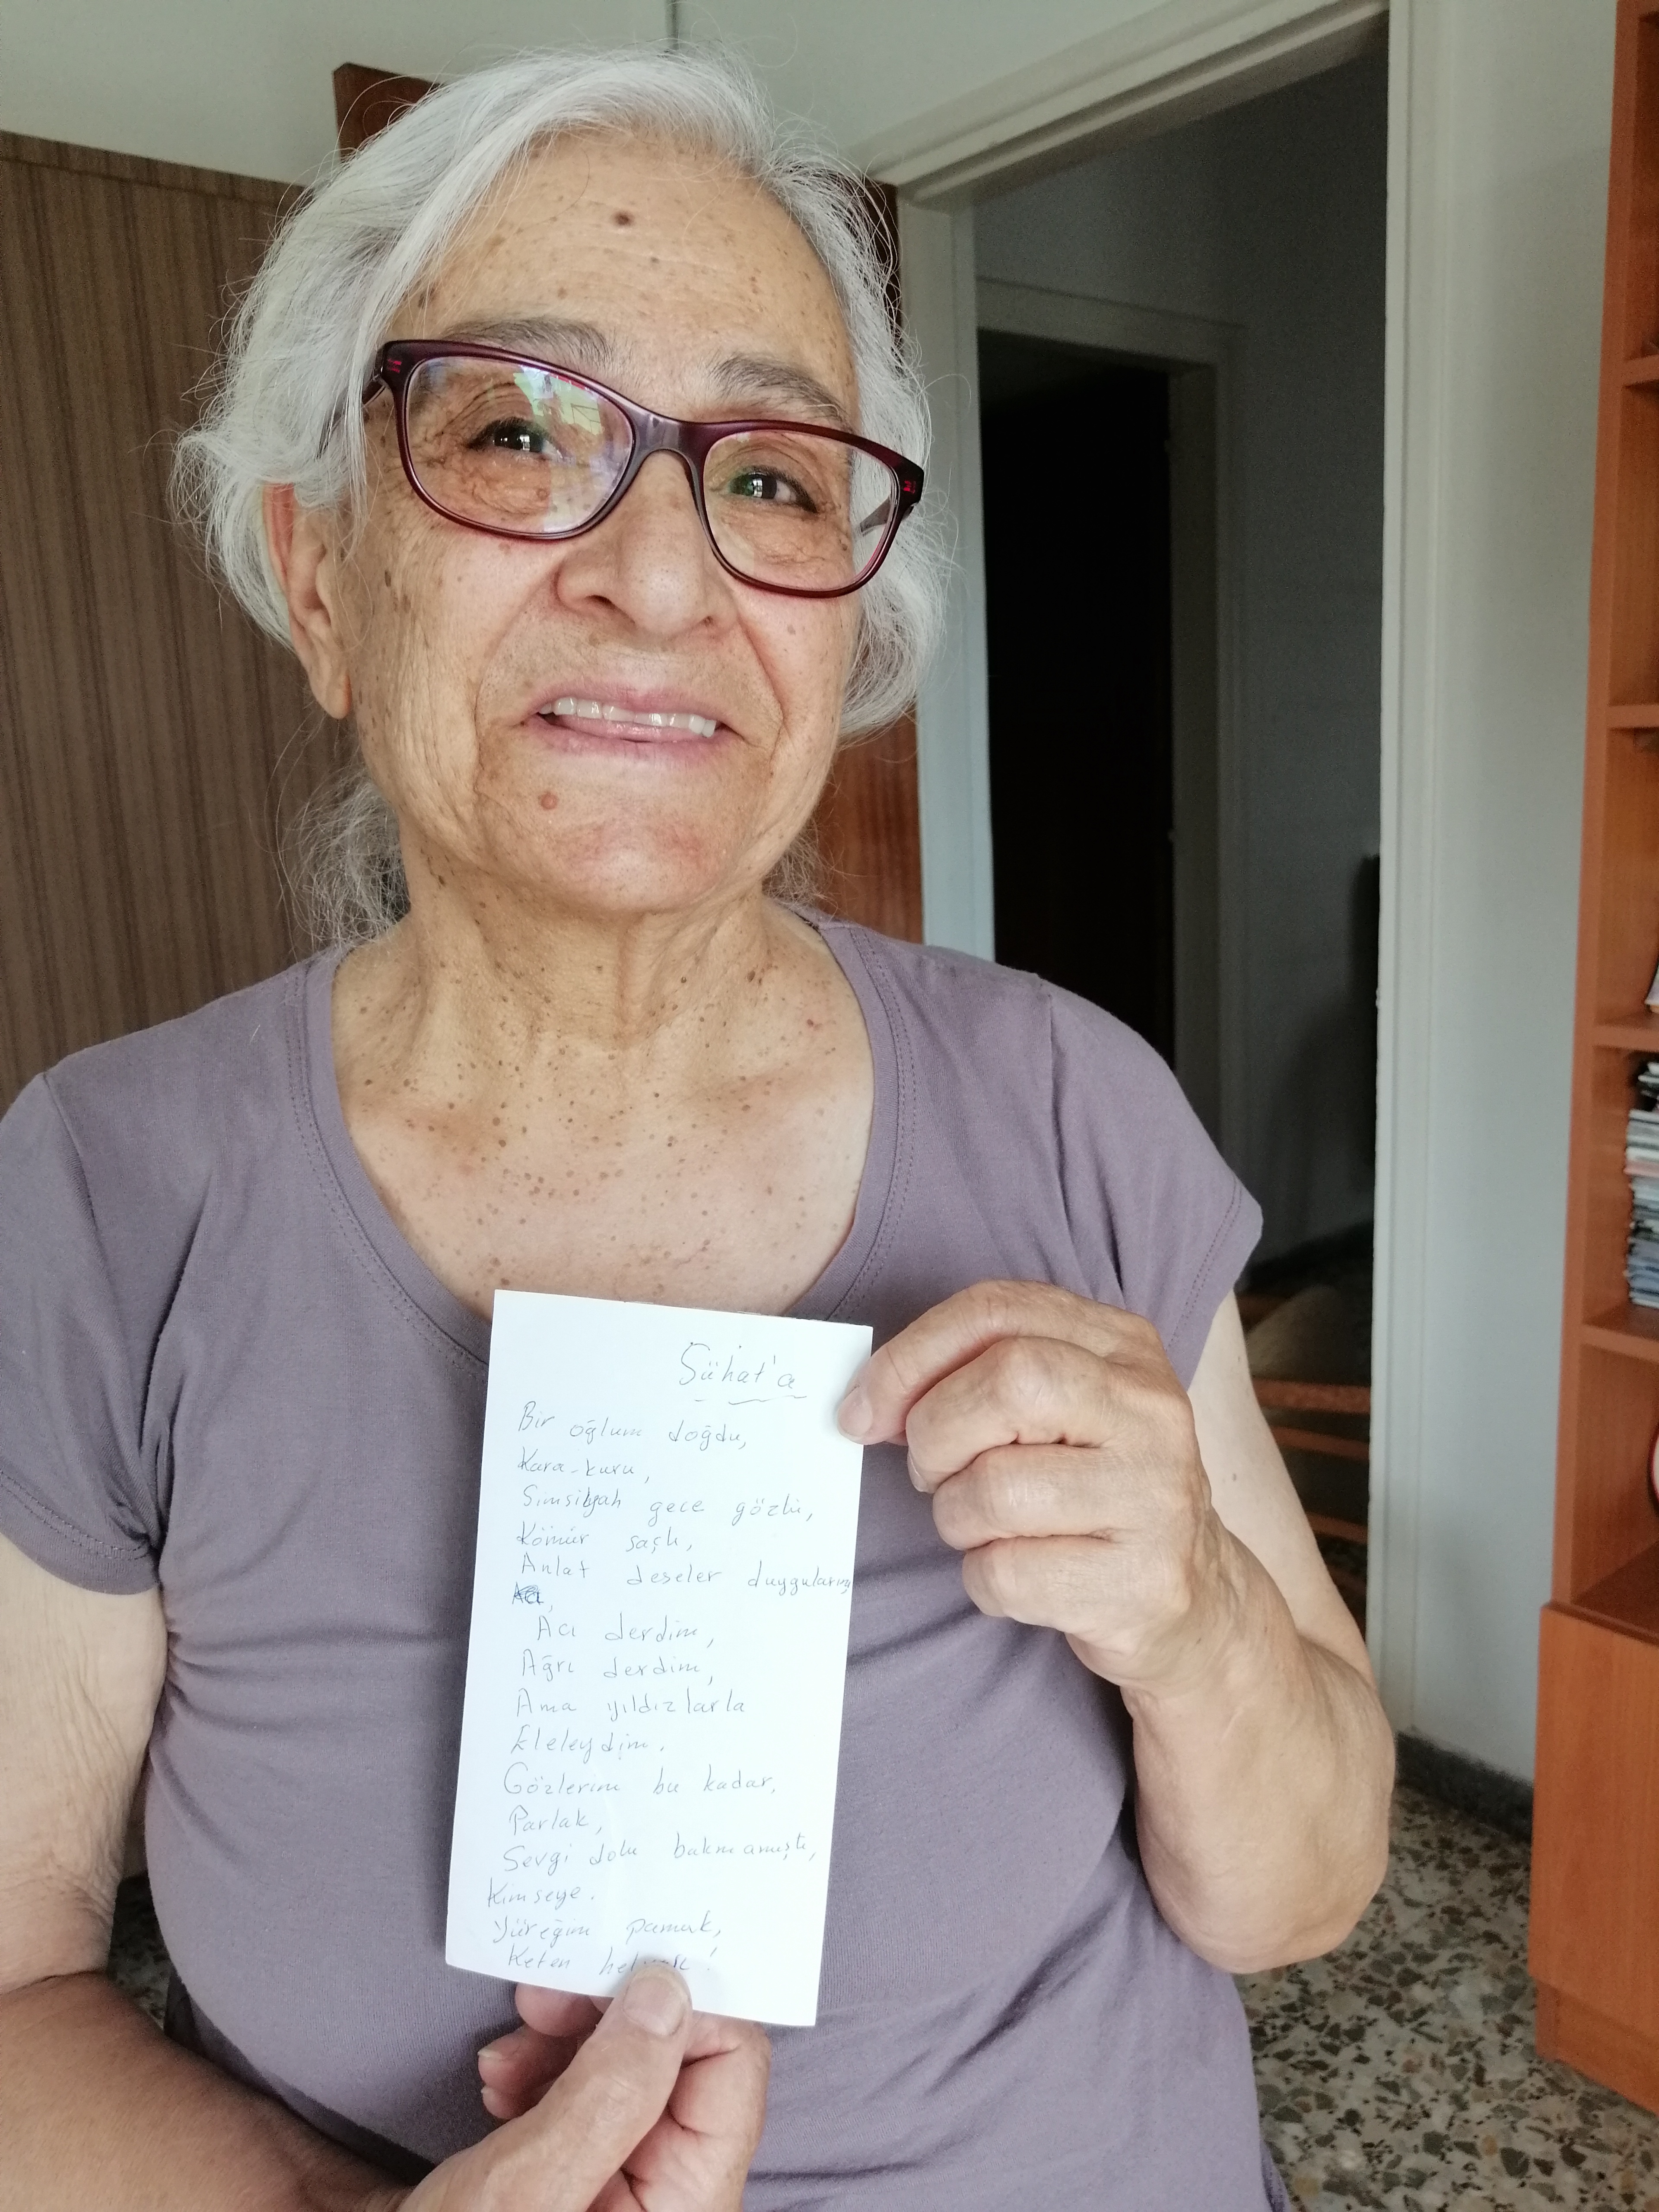 Sühat'a
Bir oğlum doğdu,
Kara-kuru,
Simsiyah gece gözlü,
Kömür saçlı,
Anlat deseler duygularını,
Acı derdim,
Ağrı derdim,
Ama yıldızlarla
Eleleydim.
Gözlerim bu kadar,
Parlak,
Sevgi dolu bakmamıştı,
Kimseye.
Yüreğim pamuk,
Keten